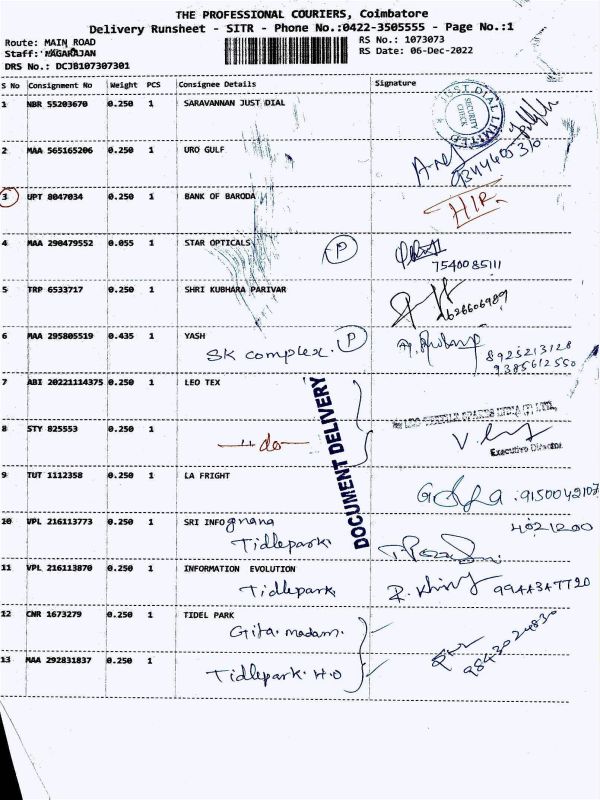 THE PROFESSIONAL COURIERS, Coimbatore
Delivery Runsheet - SITR - Phone No.:0422-3505555 - Page No.:1
Route: MAIN ROAD
RS No.: 1073073
Staff: NAGARAJAN
RS Date: 06-Dec-2022
DRS No.: DCJB107307301
S No Consignment No Weight PCS Consignee Details Signature
1 NBR 55203670 0.250 1 SARAVANNAN JUST DIAL
JUST DIAL LIMITED
SECURITY CHECK
2 MAA 565165206 0.250 1 URO GULF
3 UPT 8047034 0.250 1 BANK OF BARODA
4 MAA 290479552 0.055 1 STAR OPTICALS P
7540085111
5 TRP 6533717 0.250 1 SHRI KUBHARA PARIVAR
6 MAA 295805519 0.435 1 YASH P
SK complex.
8925213128
9385612550
7 ABI 20221114375 0.250 1 LEO TEX
DOCUMENT DELIVERY
8 STY 825553 0.250 1
-"do-
Executive Director
9 TUT 1112358 0.250 1 LA FRIGHT
9150042107
10 VPL 216113773 0.250 1 SRI INFO gnana
4021200
Tidlepark
11 VPL 216113870 0.250 1 INFORMATION EVOLUTION
Tidlepark 9944347720
12 CNR 1673279 0.250 1 TIDEL PARK
Gita. madam.
9843024830
13 MAA 292831837 0.250 1
Tidlepark. H.O